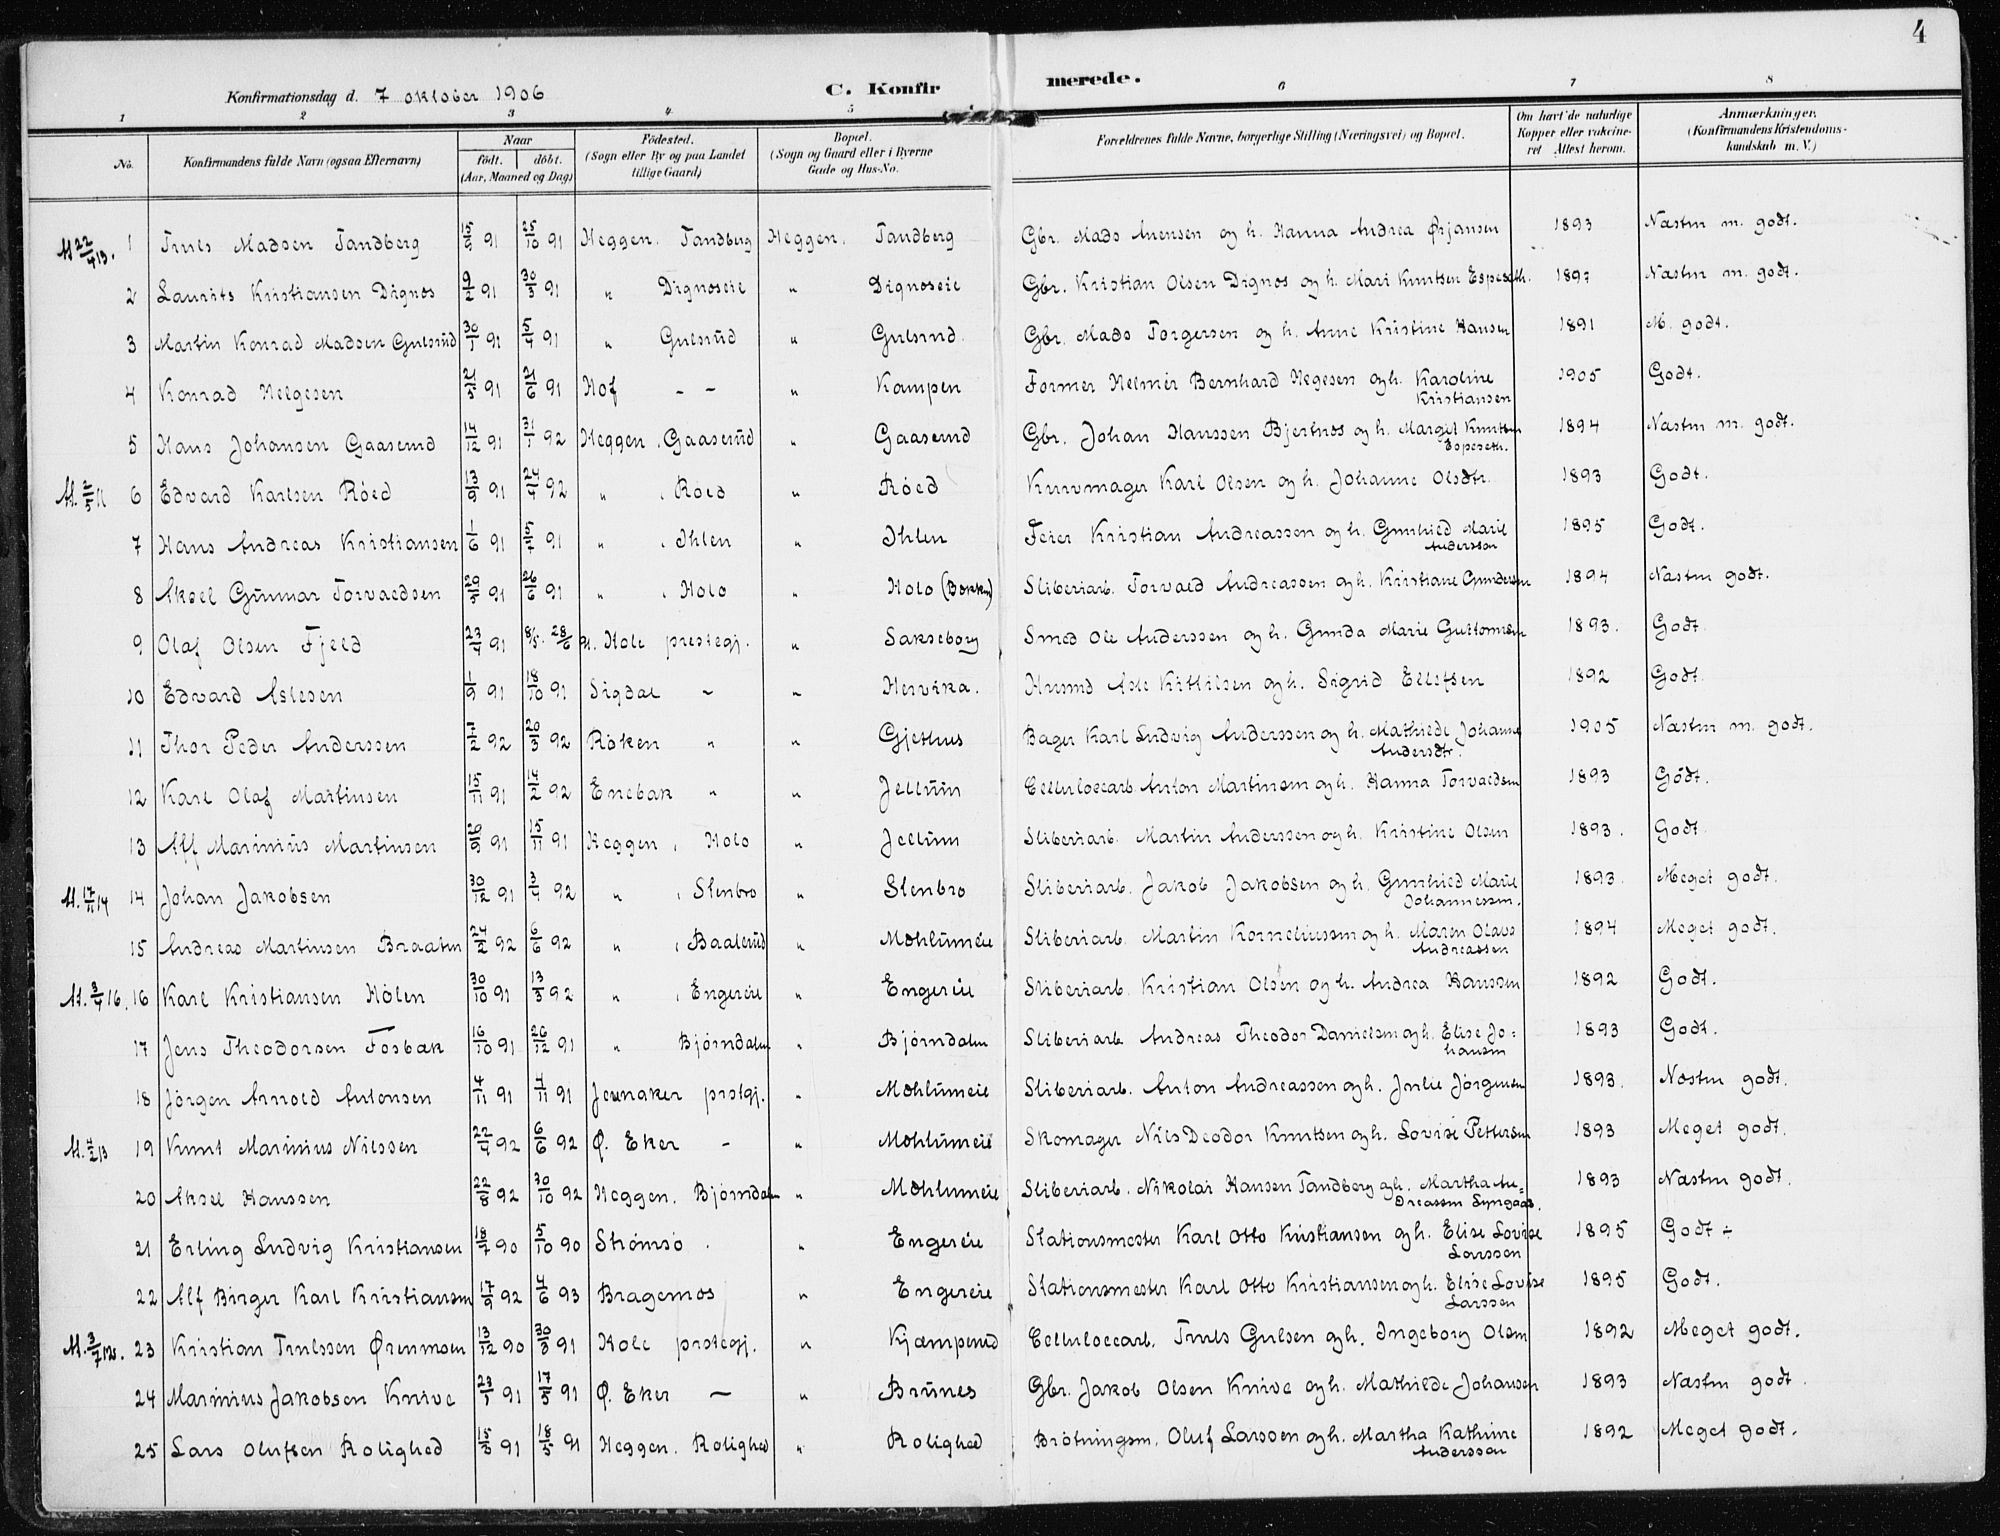 4
Konfirmationsdag d. 7 oktober 1906 C. Konfirmerede.
1 2 3 4 5 6 7 8
No. Konfirmandens fulde Navn (ogsaa Efternavn) Naar født. døbt. (Aar, Maaned og Dag) Fødested. (Sogn eller By og paa Landet tillige Gaard) Bopæl. (Sogn og Gaard eller i Byerne Gade og Hus-No. Forældrenes fulde Navne, borgerlige Stilling (Næringsvei) og Bopæl. Om havt de naturlige Kopper eller vakcineret Attest herom. Anmærkninger. (Konfirmandens Kristendomskundskab m. V.)
At. 22/4 13. 1 Truls Madsen Tandberg 15/9 91 25/10 91 Heggen. Tandberg Heggen. Tandberg Gbr. Mads Arensen og h. Hanna Andrea Ørjansen 1893 Næsten m. godt.
2 Laurits Kristiansen Dignæs 9/2 91 30/3 91 " Dignæseie " Dignæseie Gbr. Kristian Olsen Dignæs og h. Mari Knutsen Espeseth. 1897 Næsten m. godt.
3 Martin Konrad Madsen Gulsrud 30/1 91 5/4 91 " Gulsrud " Gulsrud. Gbr. Mads Torgersen og h. Anne Kristine Hansen 1891 M. godt.
4 Konrad Helgesen 91 21/6 91 Hof - - " Kampen Former Helmer Bernhard Hegesen og h. Karoline Kristiansen 1905 Godt.
5 Hans Johansen Gaaserud 14/12 91 31/1 92 Heggen. Gaaserud " Gaaserud Gbr. Johan Hanssen Bjertnæs og h. Marget Knutsen Espeseth. 1894 Næsten m. godt.
At. 2/5 11 6 Edvard Karlsen Røed 13/9 91 24/4 92 " Røed " Røed Kurvmager Karl Olsen og h. Johanne Olsdtr. 1893 Godt.
7 Hans Andreas Kristiansen 1/6 91 5/7 91 " Ihlen " Ihlen Feier Kristian Andreassen og h. Gunhild Marie Anderssen 1895 Godt.
8 Aksel Gunnar Torvaldsen 29/5 91 26/6 91 " Holo " Holo (Bækken) Sliberiarb. Torvald Andreassen og h. Kristiane Gundersen 1894 Næsten godt.
9 Olaf Olsen Fjeld 23/4 91 8/5. 28/6 91. Hole prestegj. " Sakseborg Smed Ole Anderssen og h. Gunda Marie Guttormsen 1893. Godt.
10 Edvard Aslesen 1/9 91 18/10 91 Sigdal - " Hervika. Husmd Asle Kittilsen og h. Sigrid Ellefsen 1892 Godt.
11 Thor Peder Anderssen 92 20/3 92 Røken " " Gjethus Bager Karl Ludvig Anderssen og h. Mathilde Johanne Andersdtr. 1905 Næsten m. godt.
12 Karl Olaf Martinsen 15/11 91 14/2 92 Enebak " " Jellum Cellulosearb. Anton Martinsen og h. Hanna Torvaldsen 1893 Godt.
13 Alf Marinius Martinsen 26/9 91 15/11 91 Heggen, Holo " Jellum Sliberiarb. Martin Anderssen og h. Kristine Olsen 1893. Godt.
At. 17/11 14 14 Johan Jakobsen 30/12 91 3/4 92 " Stenbro " Stenbro Sliberiarb. Jakob Jakobsen og h. Gunhild Marie Johannessen. 1893. Meget godt.
15 Andreas Martinsen Braaten 24/2 92 6/6 92 " Baalerud " Mæhlumeie Sliberiarb. Martin Korneliussen og h. Maren Olava Andreassen 1894 Meget godt.
At. 3/4 16. 16 Karl Kristiansen Holen 30/10 91 13/3 92 " Engereie " Engereie Sliberiarb. Kristian Olsen og h. Andrea Hanssen 1892 Godt.
17 Jens Theodorsen Fosbak 16/10 91 26/12 91 " Bjørndalen " Bjørndalen Sliberiarb. Andreas Theodor Danielsen og h. Elise Johansen 1893 Godt.
18 Jørgen Arnold Antonsen 4/11 91 4/11 91 Jevnaker prstgj. " Mæhlumeie Sliberiarb. Anton Andreassen og h. Julie Jørgensen 1893. Næsten godt.
At. 4/2 13 19 Knut Marinius Nilssen 22/4 92 6/6 92 Ø. Eker - " Mæhlumeie Skomager Nils Deodor Knutsen og h. Lovise Pettersen 1893 Meget godt.
20 Aksel Hanssen 22/8 92 30/10 92 Heggen. Bjørndalen " Mæhlumeie Sliberiarb. Nikolai Hansen Tandberg og h. Martha Andreassen Lyngaas. 1893 Næsten godt.
21 Erling Ludvig Kristiansen 18/7 90 5/10 90 Strømsø . " Engereie Stationsmester Karl Otto Kristiansen og h. Elise Lovise Larssen 1895 Godt ÷
22 Alf Birger Karl Kristiansen 17/9 92 4/6 93 Bragernæs " Engereie Stationsmester Karl Otto Kristiansen og h. Elise Lovise Larssen 1895 Godt.
At. 3/7 12. 23 Kristian Trulssen Ørenmoen 13/12 90 30/3 91 Hole prstegj. " Kjæmperud Cellulosearb. Truls Gulsen og h. Ingeborg Olsen 1892 Meget godt.
24 Marinius Jakobsen Knive 23/1 91 17/5 91 Ø. Eker - " Brunes Gbr. Jakob Olsen Knive og h. Mathilde Johansen 1893 Næsten godt.
25 Lars Olufsen Rolighed 15/3 91 18/5 91 Heggen. Rolighed " Rolighed Brøtningsm. Oluf Larssen og h. Martha Kathrine Anderssen 1892 Meget godt.